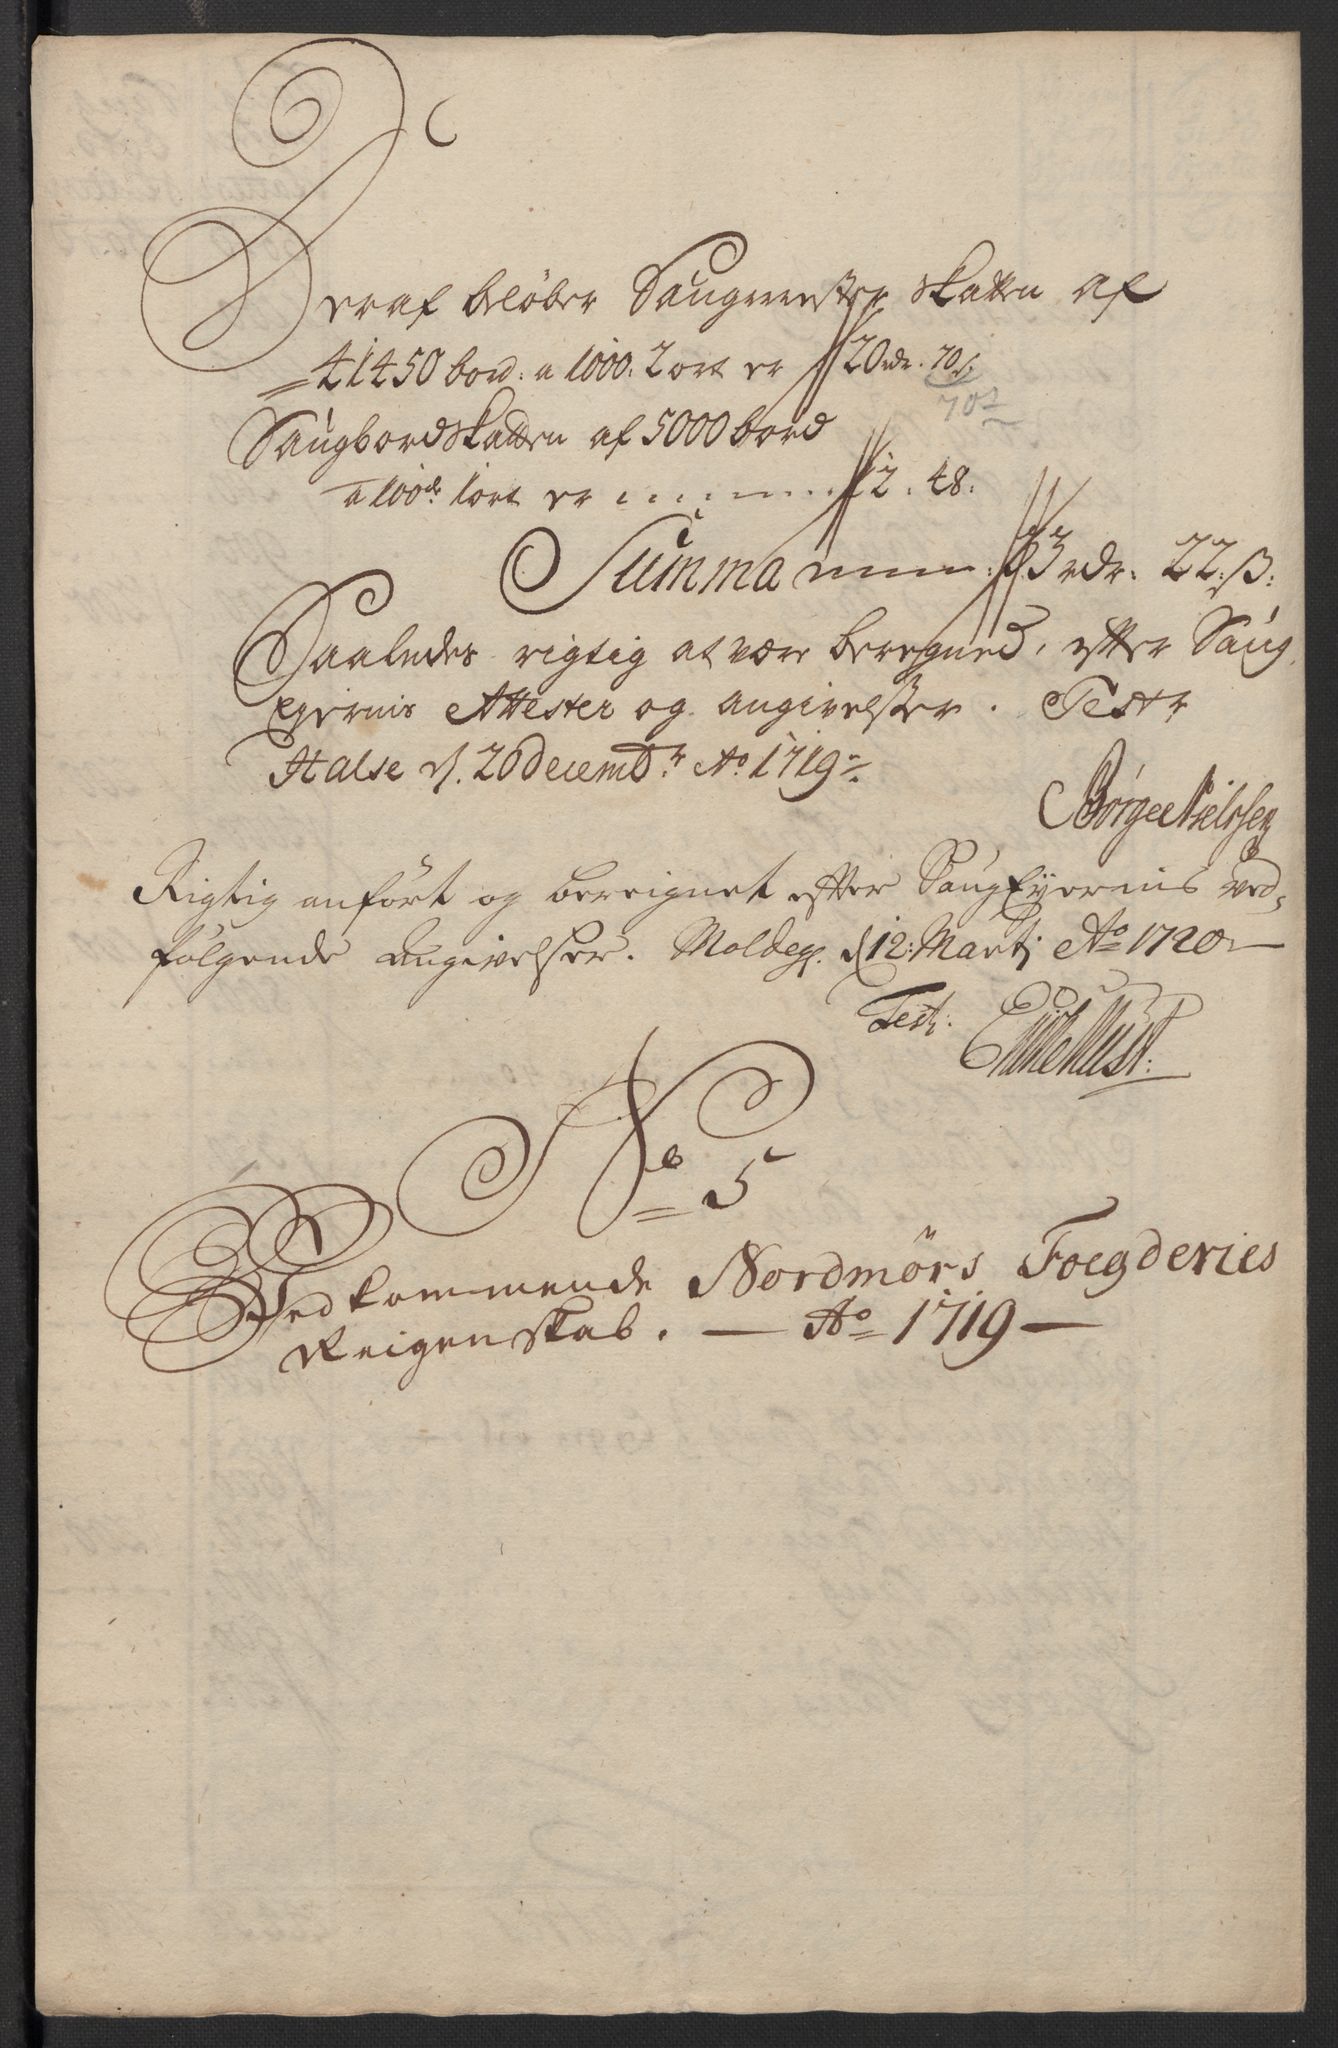 Deraf beløber Saugmester skatten af
41450 bord: a 1000: 2 ort er 20 rdr. 70 s:
70 s
Saugbordskatten af 5000 bord
a 100de 1 ort er 12. 48:
Summa 33 rdr. 22: ß:
Saaledes rigtig at være beregned, efter Saug
Eyernis Attester og angivelsser. Testr
Halse d. 26 Decembr Ao 1719
Børge Nielssen
Rigtig anført og bereignet efter SaugEyernis ved-
følgende angivelser. Molde d 12: Martj Ao 1720
Test:
No 5
Vedkommende Nordmørs Foegderies
Reigenskab. — Ao 1719 —